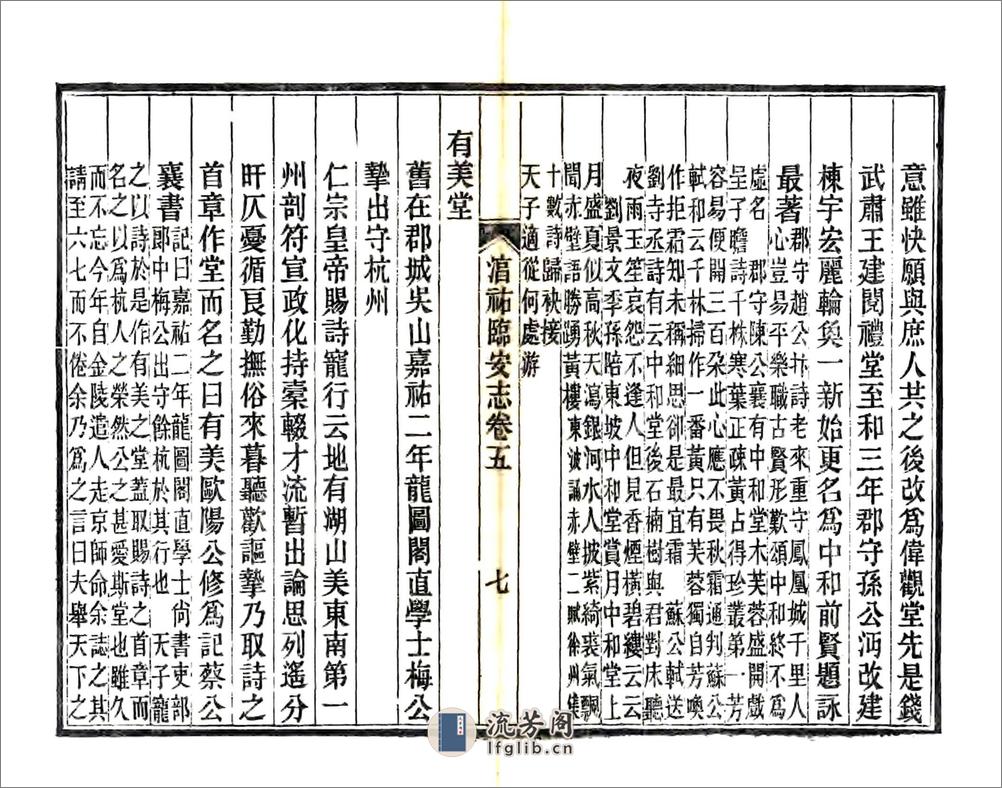 意雖快願與庶人共之後改爲偉觀堂先是錢
武肅王建閱禮堂至和三年郡守孫公沔改建
棟宇宏麗輪奐一新始更名爲中和前賢題詠
最著
郡守趙公抃詩老來重守鳳凰城千里人
心豈易平樂職古賢形歎頌中和終不爲
虛名 郡守陳公襄有中和堂木芙蓉盛開戲
呈子瞻詩千林寒葉正疎黃占得珍叢第一芳
容易便開三百朵此心應不畏秋霜通判蘇公
軾和云千林掃作一番黃只有芙蓉獨自芳喚
作拒霜知未稱細思卻是最宜霜 蘇公軾送
劉寺丞詩有云中和堂後石楠樹與君對床聽
夜雨玉笙哀怨不逢人但見香煙橫碧縷云云
劉景文季孫陪東坡中和堂賞月中和堂上
月盛夏似高秋天瀉銀河水人披紫綺裘氣飄
間赤壁語勝踴黃樓東波誦赤壁二賦徐州集
十數詩歸袂接
天子適從何處游
湻祐臨安志卷五
七
有美堂
舊在郡城吳山嘉祐二年龍圖閣直學士梅公
摯出守杭州
仁宗皇帝賜詩寵行云地有湖山美東南第一
州剖符宣政化持橐輟才流暫出論思列遙分
旰仄憂循良勤撫俗來暮聽歡謳摯乃取詩之
首章作堂而名之曰有美歐陽公修爲記蔡公
襄書
記曰嘉祐二年龍圖閣直學士尙書吏部
郎中梅公出守餘杭於其行也 天子寵
之以詩於是作有美之堂蓋取賜詩之首章而
名之以爲杭人之榮然公之甚愛斯堂也雖久
而不忘今年自金陵遣人走京師命余誌之其
請至六七而不倦余乃爲之言曰夫舉天下之
流芳阁
lfglib.cn